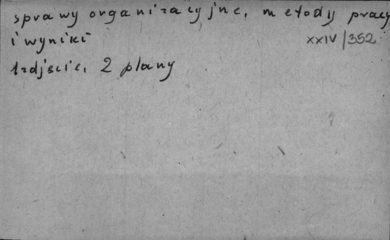 sprawy organizacyjne, metody pracy
i wyniki
XXIV/352
1 zdjęcie, 2 plany